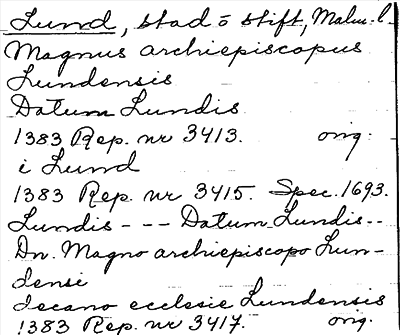 Lund, stad o stift, Malm. l.
Magnus archiepiscopus
Lundensis
Datum Lundis
1383 Rep. nr 3413. orig.
i Lund
1383 Rep. nr 3415. Spec. 1693.
Lundis - - - Datum Lundis - -
Dn. Magno archiepiscopo Lun-
densi
decano ecclesie Lundensis
1383 Rep. nr 3417. orig.